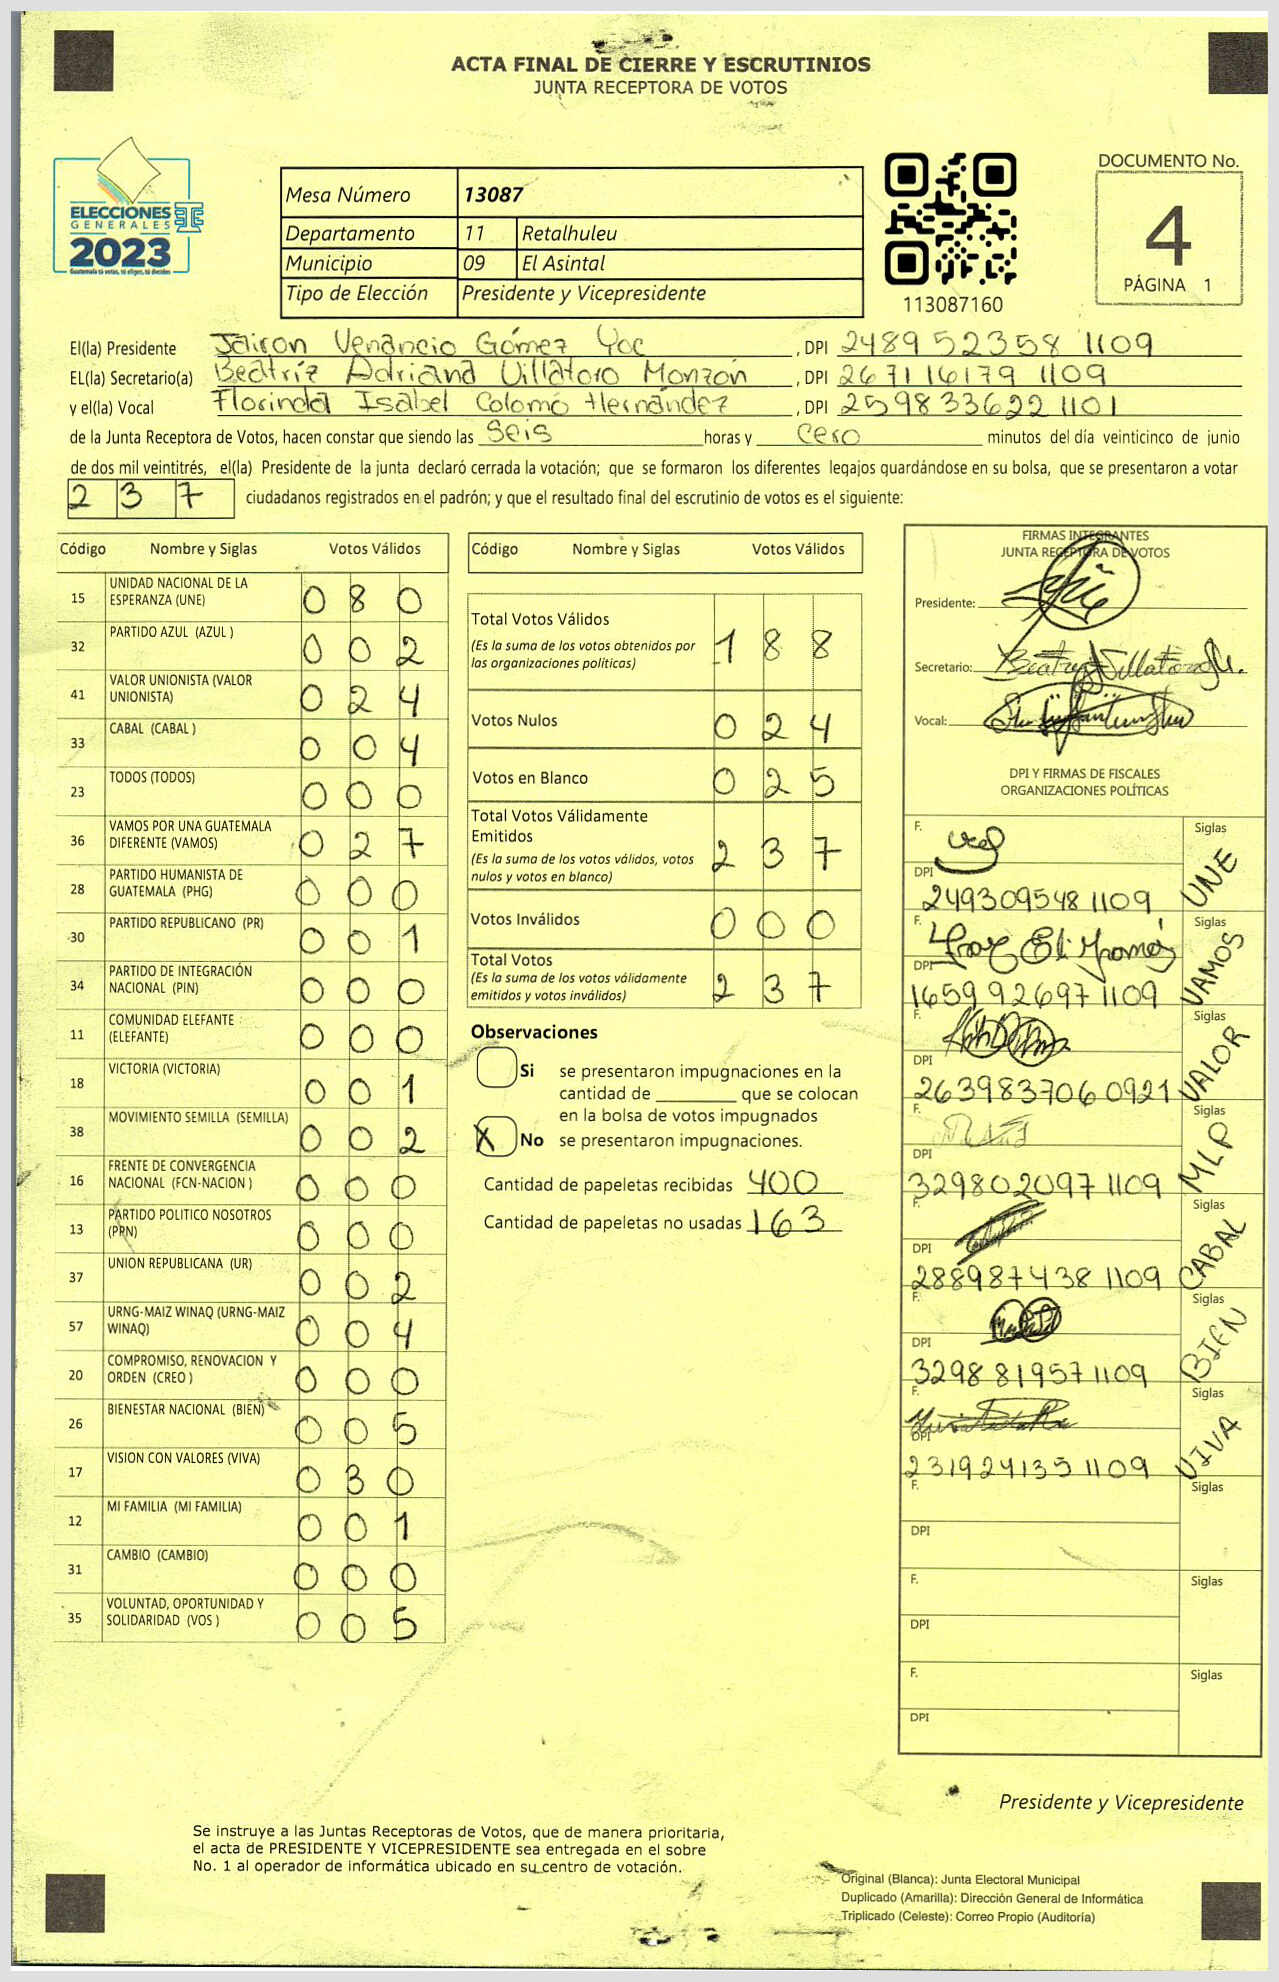 ACTA FINAL DE CIERRE Y ESCRUTINIOS
JUNTA RECEPTORA DE VOTOS
ELECCIONES
GENERALES
2023
Guatemala tú votas, tú eliges, tú decides
Mesa Número 13087
Departamento 11 Retalhuleu
Municipio 09 El Asintal
Tipo de Elección Presidente y Vicepresidente
113087160
DOCUMENTO No.
4
PÁGINA 1
El(la) Presidente Jairon Venancio Gómez Yoc , DPI 2489 52358 1109
EL(la) Secretario(a) Beatríz Adriana Villatoro Monzón , DPI 2671 16179 1109
y el(la) Vocal Florinda Isabel Colomo Hernández , DPI 2598336221101
de la Junta Receptora de Votos, hacen constar que siendo las Seis horas y Cero minutos del día veinticinco de junio
de dos mil veintitrés, el(la) Presidente de la junta declaró cerrada la votación; que se formaron los diferentes legajos guardándose en su bolsa, que se presentaron a votar
2 3 7 ciudadanos registrados en el padrón; y que el resultado final del escrutinio de votos es el siguiente:
Código Nombre y Siglas Votos Válidos
15 UNIDAD NACIONAL DE LA ESPERANZA (UNE) 0 8 0
32 PARTIDO AZUL (AZUL ) 0 0 2
41 VALOR UNIONISTA (VALOR UNIONISTA) 0 2 4
33 CABAL (CABAL ) 0 0 4
23 TODOS (TODOS) 0 0 0
36 VAMOS POR UNA GUATEMALA DIFERENTE (VAMOS) 0 2 7
28 PARTIDO HUMANISTA DE GUATEMALA (PHG) 0 0 0
30 PARTIDO REPUBLICANO (PR) 0 0 1
34 PARTIDO DE INTEGRACIÓN NACIONAL (PIN) 0 0 0
11 COMUNIDAD ELEFANTE (ELEFANTE) 0 0 0
18 VICTORIA (VICTORIA) 0 0 1
38 MOVIMIENTO SEMILLA (SEMILLA) 0 0 2
16 FRENTE DE CONVERGENCIA NACIONAL (FCN-NACION ) 0 0 0
13 PARTIDO POLITICO NOSOTROS (PPN) 0 0 0
37 UNION REPUBLICANA (UR) 0 0 2
57 URNG-MAIZ WINAQ (URNG-MAIZ WINAQ) 0 0 4
20 COMPROMISO, RENOVACION Y ORDEN (CREO ) 0 0 0
26 BIENESTAR NACIONAL (BIEN) 0 0 5
17 VISION CON VALORES (VIVA) 0 3 0
12 MI FAMILIA (MI FAMILIA) 0 0 1
31 CAMBIO (CAMBIO) 0 0 0
35 VOLUNTAD, OPORTUNIDAD Y SOLIDARIDAD (VOS ) 0 0 5
Código Nombre y Siglas Votos Válidos
Total Votos Válidos 1 8 8
(Es la suma de los votos obtenidos por
las organizaciones políticas)
Votos Nulos 0 2 4
Votos en Blanco 0 2 5
Total Votos Válidamente
Emitidos 2 3 7
(Es la suma de los votos válidos, votos
nulos y votos en blanco)
Votos Inválidos 0 0 0
Total Votos
(Es la suma de los votos válidamente
emitidos y votos inválidos) 2 3 7
Observaciones
Si se presentaron impugnaciones en la
cantidad de ________ que se colocan
en la bolsa de votos impugnados
X No se presentaron impugnaciones.
Cantidad de papeletas recibidas 400
Cantidad de papeletas no usadas 163
FIRMAS INTEGRANTES
JUNTA RECEPTORA DE VOTOS
Presidente:
Secretario:
Vocal:
DPI Y FIRMAS DE FISCALES
ORGANIZACIONES POLÍTICAS
F. Siglas
DPI 249309548 1109 UNE
F. Siglas
DPI 1659 92697 1109 VAMOS
F. Siglas
DPI 263983706 0921 VALOR
F. Siglas
DPI 329802097 1109 MLP
F. Siglas
DPI 288987438 1109 CABAL
F. Siglas
DPI 3298 81957 1109 BIEN
F. Siglas
DPI 231924135 1109 VIVA
F. Siglas
DPI
F. Siglas
DPI
F. Siglas
DPI
Presidente y Vicepresidente
Se instruye a las Juntas Receptoras de Votos, que de manera prioritaria,
el acta de PRESIDENTE Y VICEPRESIDENTE sea entregada en el sobre
No. 1 al operador de informática ubicado en su centro de votación.
Original (Blanca): Junta Electoral Municipal
Duplicado (Amarilla): Dirección General de Informática
Triplicado (Celeste): Correo Propio (Auditoría)